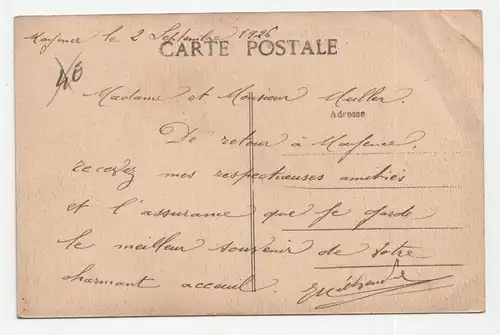 Mayence le 2 Septembre 1926
CARTE POSTALE
40
Madame et Monsieur Muller.
Adresse
De retour à Mayence,
recevez mes respectueuses amitiés
et l'assurance que je garde
le meilleur souvenir de votre
charmant accueil.